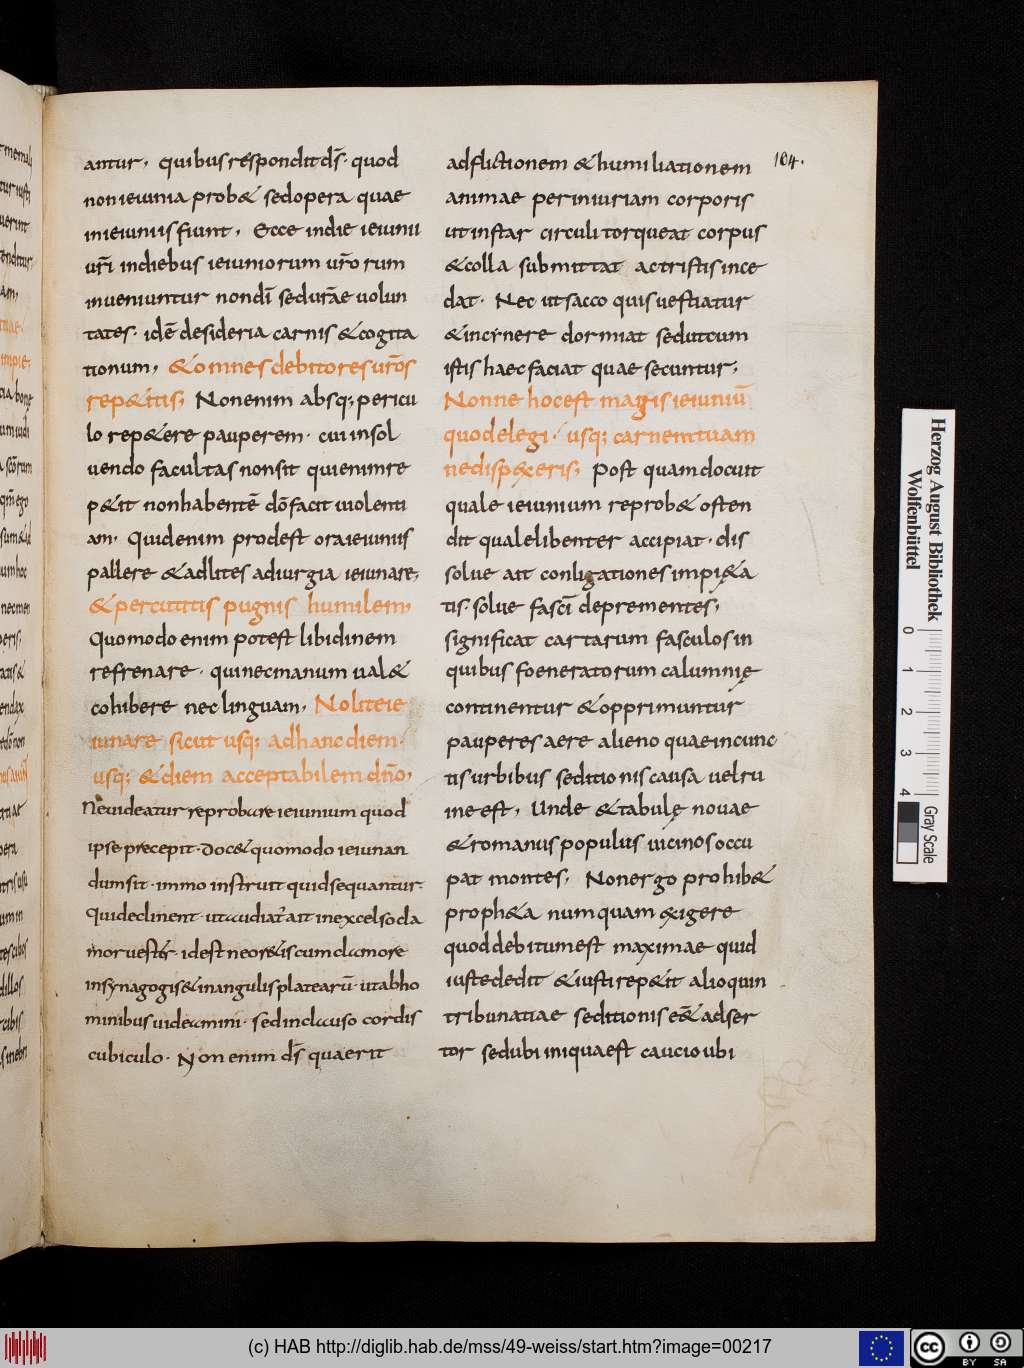 antur, quibus respondit d̄s· quod
non ieiunia prob& sed opera quae
in ieiuniis fiunt, Ecce in die ieiunii
ur̄i in diebus ieiuniorum ur̄orum
inueniuntur non dī sed ur̄ae uolun
tates· idē desideria carnis & cogita
tionum, & omnes debitores ur̄os
rep&itis; Non enim absq; pericu
lo rep&ere pauperem· cui in sol
uendo facultas non sit qui enim re
p&it non habentē dōfacit uiolenti
am· Quid enim prodest ora ieiuniis
pallere & adlites ad iurgia ieiunare;
& percutitis pugnis humilem,
Quomodo enim potest libidinem
refrenare· qui nec manum ual&
cohibere nec linguam, Nolite ie
iunare sicut usq; ad hanc diem·
usq; & diem acceptabilem dn̄o,
Ne uideatur reprobare ieiunium quod
ipse precepit· doc& quomodo ieiunan
dum sit· immo instruit quid sequantur·
Quid eclinent· ut audiat̄ ait in excelso cla
mor uest̄r· id est ne or&is cum clamore
in synagogis & in angulis platearū· ut ab ho
minibus uideamini· sed in clauso cordis
cubiculo· Non enim d̄s quaerit
adflictionem & humiliationem
animae per iniuriam corporis
ut instar circuli torqueat corpus
& colla submittat ac tristis ince
dat· Nec ut sacco quis uestiatur
& in cinere dormiat sed ut cum
istis haec faciat quae secuntur;
Nonne hoc est magis ieiuniū
quod elegi· usq; carnem tuam
ne dispexeris; Post quam docuit
quale ieiunium reprob& osten
dit quale libenter accipiat· dis
solue ait conligationes impi&a
tis· solue fascī deprementes,
significat cartarum fasculos in
quibus foeneratorum calumnię
continentur & opprimuntur
pauperes aere alieno quae in cunc
tis urbibus seditionis causa uel ru
ine est, Unde & tabulę nouae
& romanus populus uicinos occu
pat montes, Non ergo prohib&
proph&a num quam exigere
quod debitum est maximae quid
iuste dedit & iusti rep&it alioquin
tribunatiae seditionis ee& adser
tor sed ubi iniqua est caucio ubi
104.
Herzog August Bibliothek
Wolfenbüttel
0 1 2 3 4
Gray Scale
(c) HAB http://diglib.hab.de/mss/49-weiss/start.htm?image=00217
cc BY SA